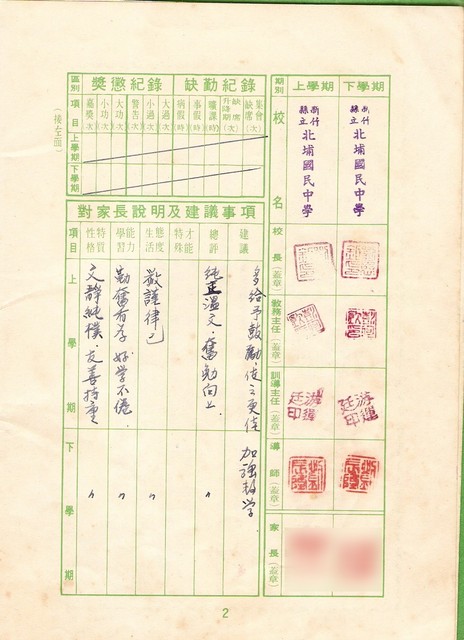 期別 上學期 下學期
校名
新竹縣立北埔國民中學
新竹縣立北埔國民中學
校長(蓋章)
教務主任(蓋章)
訓導主任(蓋章)
導師(蓋章)
家長(蓋章)
獎懲紀錄 缺勤紀錄
區別
項目
嘉獎(次)
小功(次)
大功(次)
警告(次)
小過(次)
大過(次)
病假(時)
事假(時)
曠課(時)
升降期缺席(次)
集會缺席(次)
上學期
下學期
對家長說明及建議事項
項目
性格特質
學習能力
生活態度
特殊才能
總評
建議
上學期
文靜純樸.友善持重
勤奮有序 好學不倦.
敬謹律己
純正溫文.奮勉向上.
多給予鼓勵.使之更佳
下學期
〃
〃
〃
〃
加強數學
2